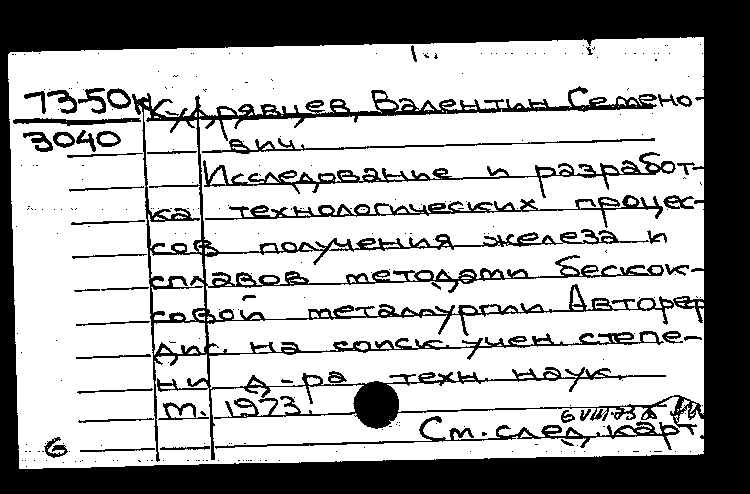 73-50к Кудрявцев, Валентин Семено-
3040 вич.
Исследование и разработ-
ка технологических процес-
сов получения железа и
сплавов методами бескок-
совой металлургии. Автореф
дис. на соиск. учен. степе-
ни д-ра техн. наук.
М. 1973.
См. след. карт.
6